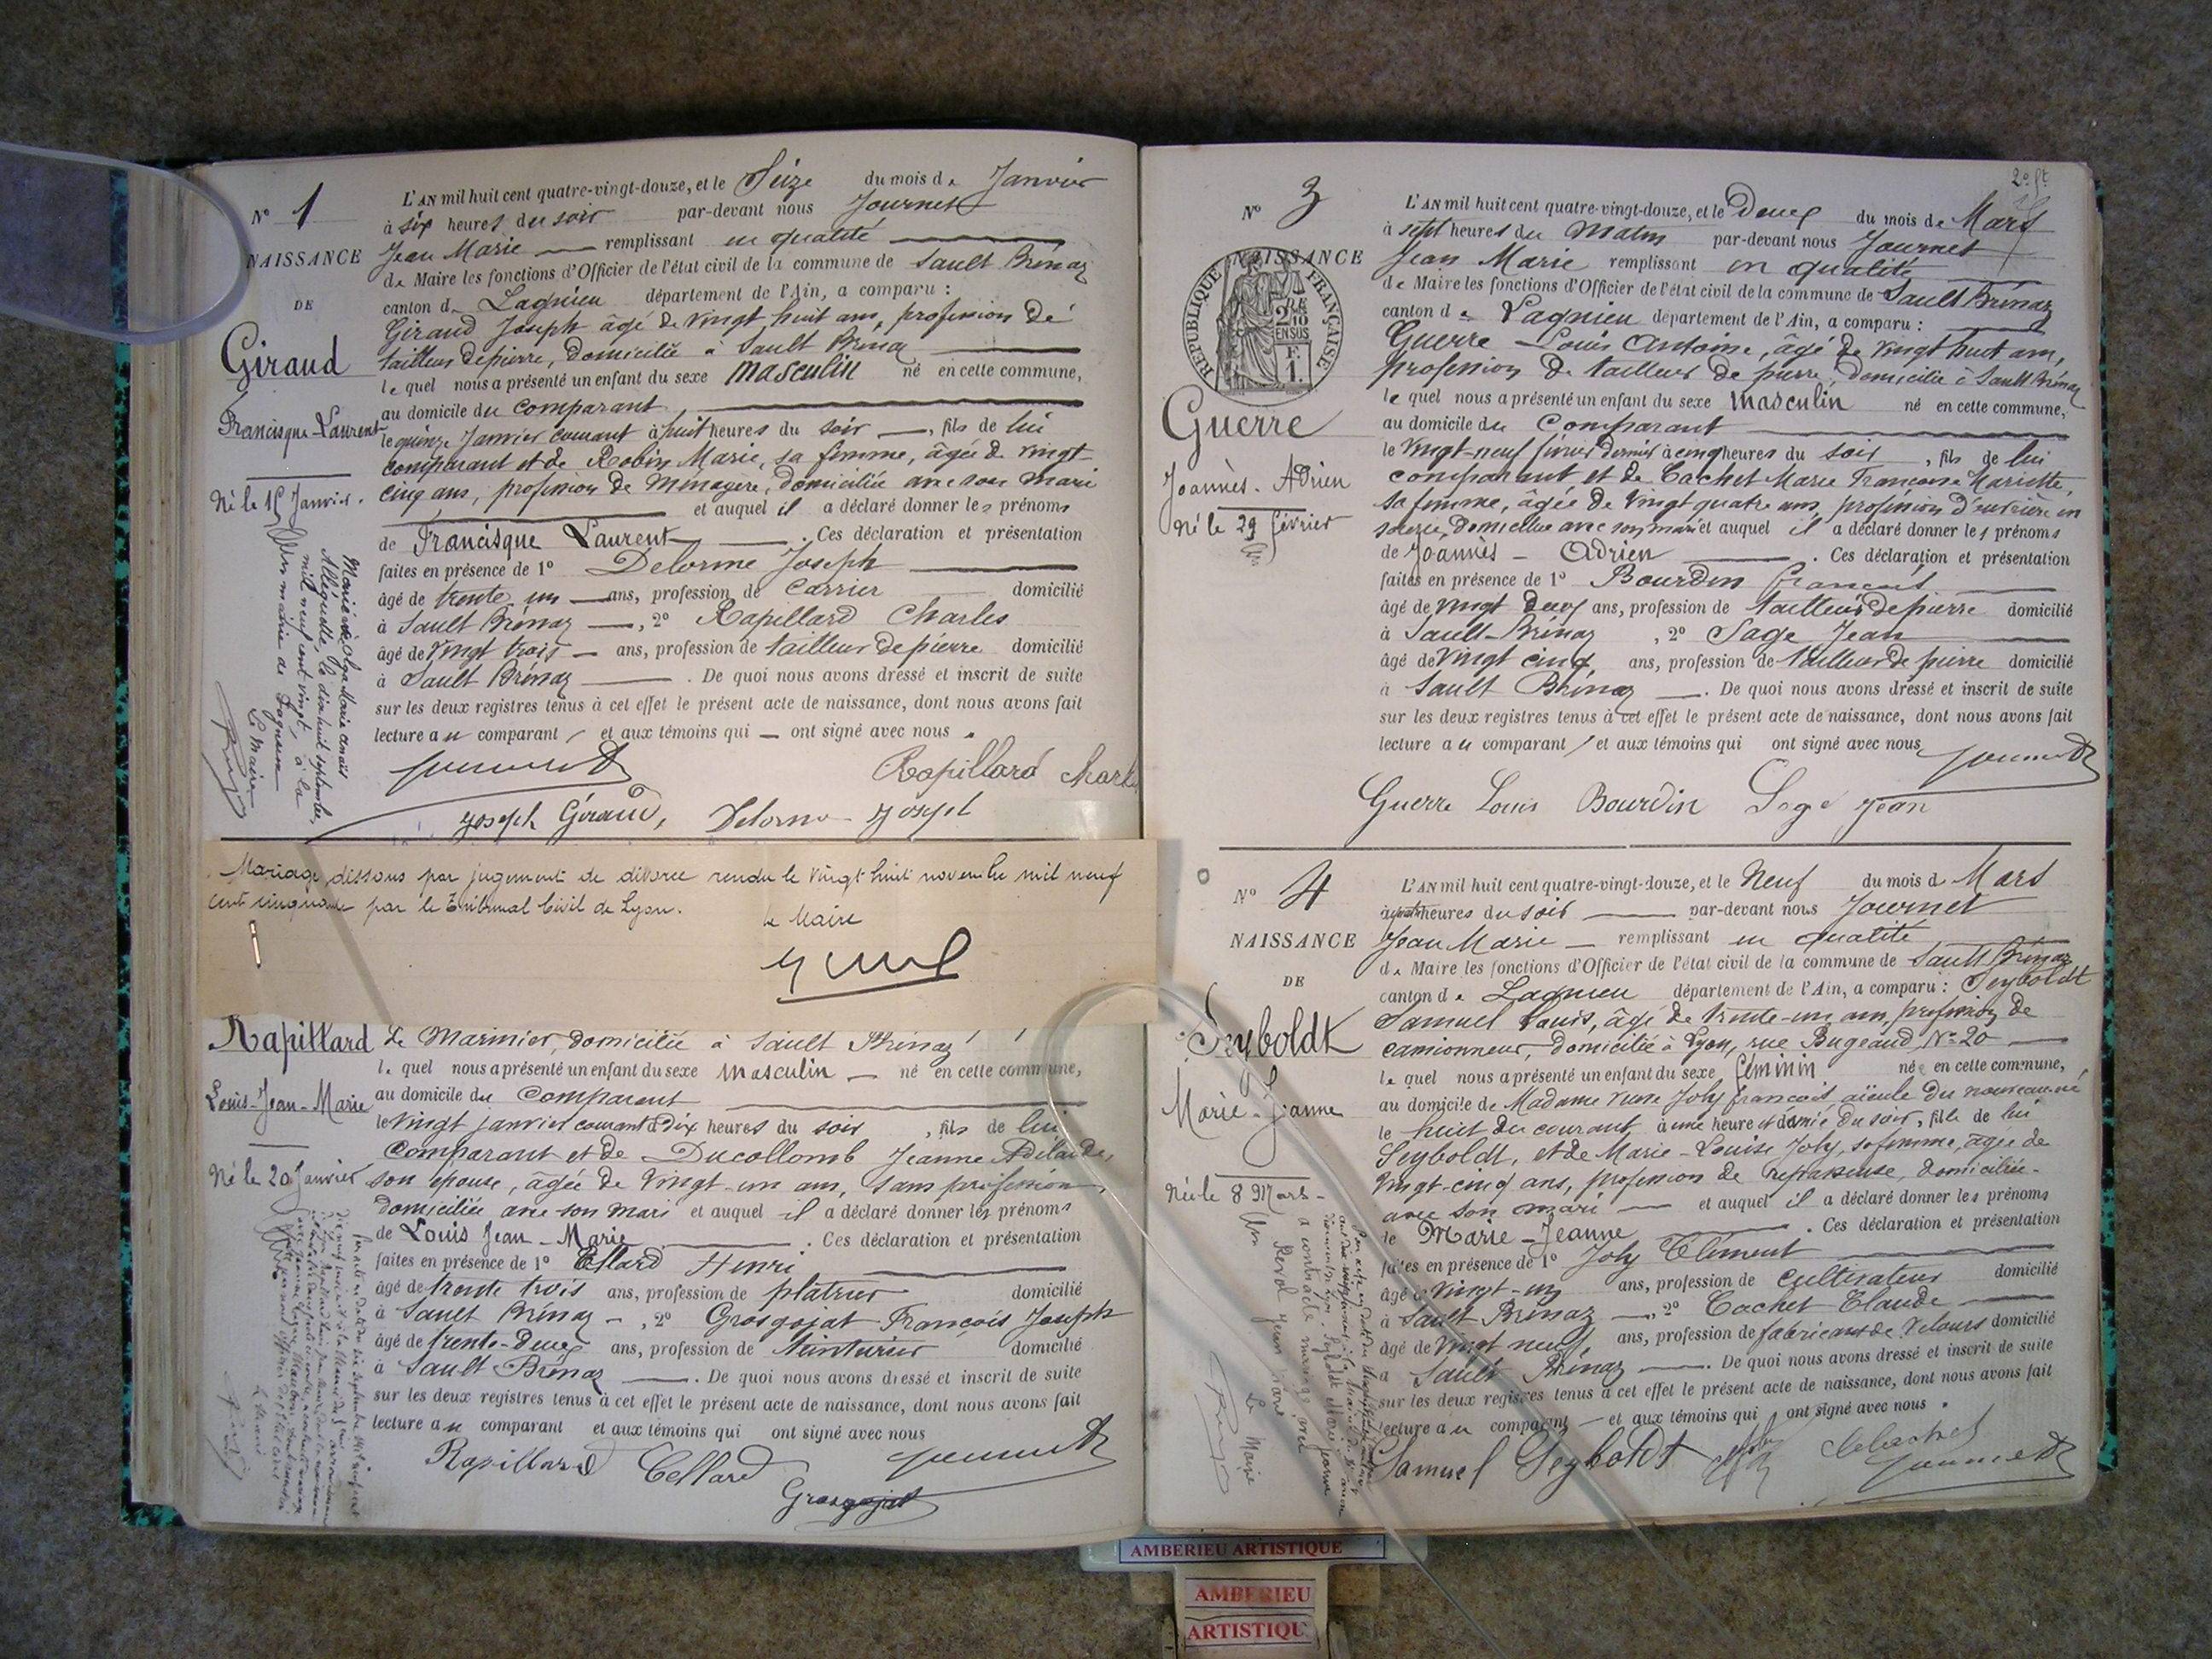 N° 1
NAISSANCE
DE
Giraud
Francisque-Laurent
Né le 15 Janvier.
L'AN mil huit cent quatre-vingt-douze, et le Seize du mois de Janvier
à six heures du soir par-devant nous Journet
Jean Marie remplissant en qualité
de Maire les fonctions d'Officier de l'état civil de la commune de Sault Brénaz
canton de Lagnieu département de l'Ain, a comparu :
Giraud Joseph âgé de vingt huit ans, profession de
tailleur de pierre, domicilié à Sault Brénaz
lequel nous a présenté un enfant du sexe masculin né en cette commune,
au domicile du comparant,
le quinze Janvier courant à huit heures du soir, fils de lui
comparant et de Robin Marie, sa femme, âgée de vingt-
cinq ans, profession de Ménagère, domiciliée avec son mari
et auquel il a déclaré donner les prénoms
de Francisque Laurent. Ces déclaration et présentation
faites en présence de 1° Delorme Joseph
âgé de trente un ans, profession de Carrier domicilié
à Sault Brénaz, 2° Rapillard Charles
âgé de vingt trois ans, profession de tailleur de pierre domicilié
à Sault Brénaz. De quoi nous avons dressé et inscrit de suite
sur les deux registres tenus à cet effet le présent acte de naissance, dont nous avons fait
lecture au comparant et aux témoins qui ont signé avec nous.
Journet Rapillard Charle
Joseph Giraud, Delorme Joseph
Marié à Olga Marie
le dix huit septembre
mil neuf cent vingt, à la
mairie de Lagnieu
Le Maire
Mariage dissous par jugement de divorce rendu le vingt huit novembre mil neuf
cent cinquante par le Tribunal Civil de Lyon.
Le Maire
Rapillard
Louis-Jean-Marie
Né le 20 Janvier
de Marinier, domicilié à Sault Brénaz
lequel nous a présenté un enfant du sexe masculin né en cette commune,
au domicile du comparant
le vingt janvier courant à dix heures du soir, fils de lui
comparant et de Ducollomb Jeanne Adélaïde,
son épouse, âgée de vingt-un ans, sans profession,
domiciliée avec son mari et auquel il a déclaré donner les prénoms
de Louis Jean-Marie. Ces déclaration et présentation
faites en présence de 1° Cellard Henri
âgé de trente trois ans, profession de platrier domicilié
à Sault Brénaz, 2° Grosgojat François Joseph
âgé de trente-deux ans, profession de teinturier domicilié
à Sault Brénaz. De quoi nous avons dressé et inscrit de suite
sur les deux registres tenus à cet effet le présent acte de naissance, dont nous avons fait
lecture au comparant et aux témoins qui ont signé avec nous
Rapillard Cellard Journet
Grosgojat
2e ft
N° 3
NAISSANCE
REPUBLIQUE FRANÇAISE
2/10 EN SUS
F. 1.
Guerre
Joannès-Adrien
Né le 29 février
L'AN mil huit cent quatre-vingt-douze, et le Deux du mois de Mars
à sept heures du Matin par-devant nous Journet
Jean Marie remplissant en qualité
de Maire les fonctions d'Officier de l'état civil de la commune de Sault Brénaz
canton de Lagnieu département de l'Ain, a comparu :
Guerre Louis Antoine, âgé de vingt huit ans,
profession de tailleur de pierre, domicilié à Sault Brénaz
lequel nous a présenté un enfant du sexe masculin né en cette commune,
au domicile du comparant
le vingt-neuf février dernier à cinq heures du soir, fils de lui
comparant et de Cachet Marie Françoise Mariette,
sa femme, âgée de vingt quatre ans, profession d'ouvrière en
soierie, domiciliée avec son mari et auquel il a déclaré donner les prénoms
de Joannès-Adrien. Ces déclaration et présentation
faites en présence de 1° Bourdin François
âgé de vingt deux ans, profession de tailleur de pierre domicilié
à Sault-Brénaz, 2° Sage Jean
âgé de vingt cinq ans, profession de tailleur de pierre domicilié
à Sault Brénaz. De quoi nous avons dressé et inscrit de suite
sur les deux registres tenus à cet effet le présent acte de naissance, dont nous avons fait
lecture au comparant et aux témoins qui ont signé avec nous
Journet
Guerre Louis Bourdin Sage Jean
N° 4
NAISSANCE
DE
Seyboldt
Marie-Jeanne
Née le 8 Mars
L'AN mil huit cent quatre-vingt-douze, et le Neuf du mois de Mars
à quatre heures du soir par-devant nous Journet
Jean Marie remplissant en qualité
de Maire les fonctions d'Officier de l'état civil de la commune de Sault Brénaz
canton de Lagnieu département de l'Ain, a comparu : Seyboldt
Samuel Louis, âgé de trente-un ans, profession de
camionneur, domicilié à Lyon, rue Bugeaud, N° 20
lequel nous a présenté un enfant du sexe féminin née en cette commune,
au domicile de Madame veuve Joly François, aïeule du nouveau-né
le huit du courant, à une heure et demie du soir, fille de lui
Seyboldt, et de Marie-Louise Joly, sa femme, âgée de
vingt-cinq ans, profession de repasseuse, domiciliée
avec son mari et auquel il a déclaré donner les prénoms
de Marie-Jeanne. Ces déclaration et présentation
faites en présence de 1° Joly Clément
âgé de vingt-un ans, profession de cultivateur domicilié
à Sault Brénaz, 2° Cachet Claude
âgé de vingt neuf ans, profession de fabricant de velours domicilié
à Sault Brénaz. De quoi nous avons dressé et inscrit de suite
sur les deux registres tenus à cet effet le présent acte de naissance, dont nous avons fait
lecture au comparant et aux témoins qui ont signé avec nous.
Samuel Seyboldt Journet
a contracté mariage avec
Le Maire
AMBERIEU ARTISTIQUE
AMBERIEU
ARTISTIQU